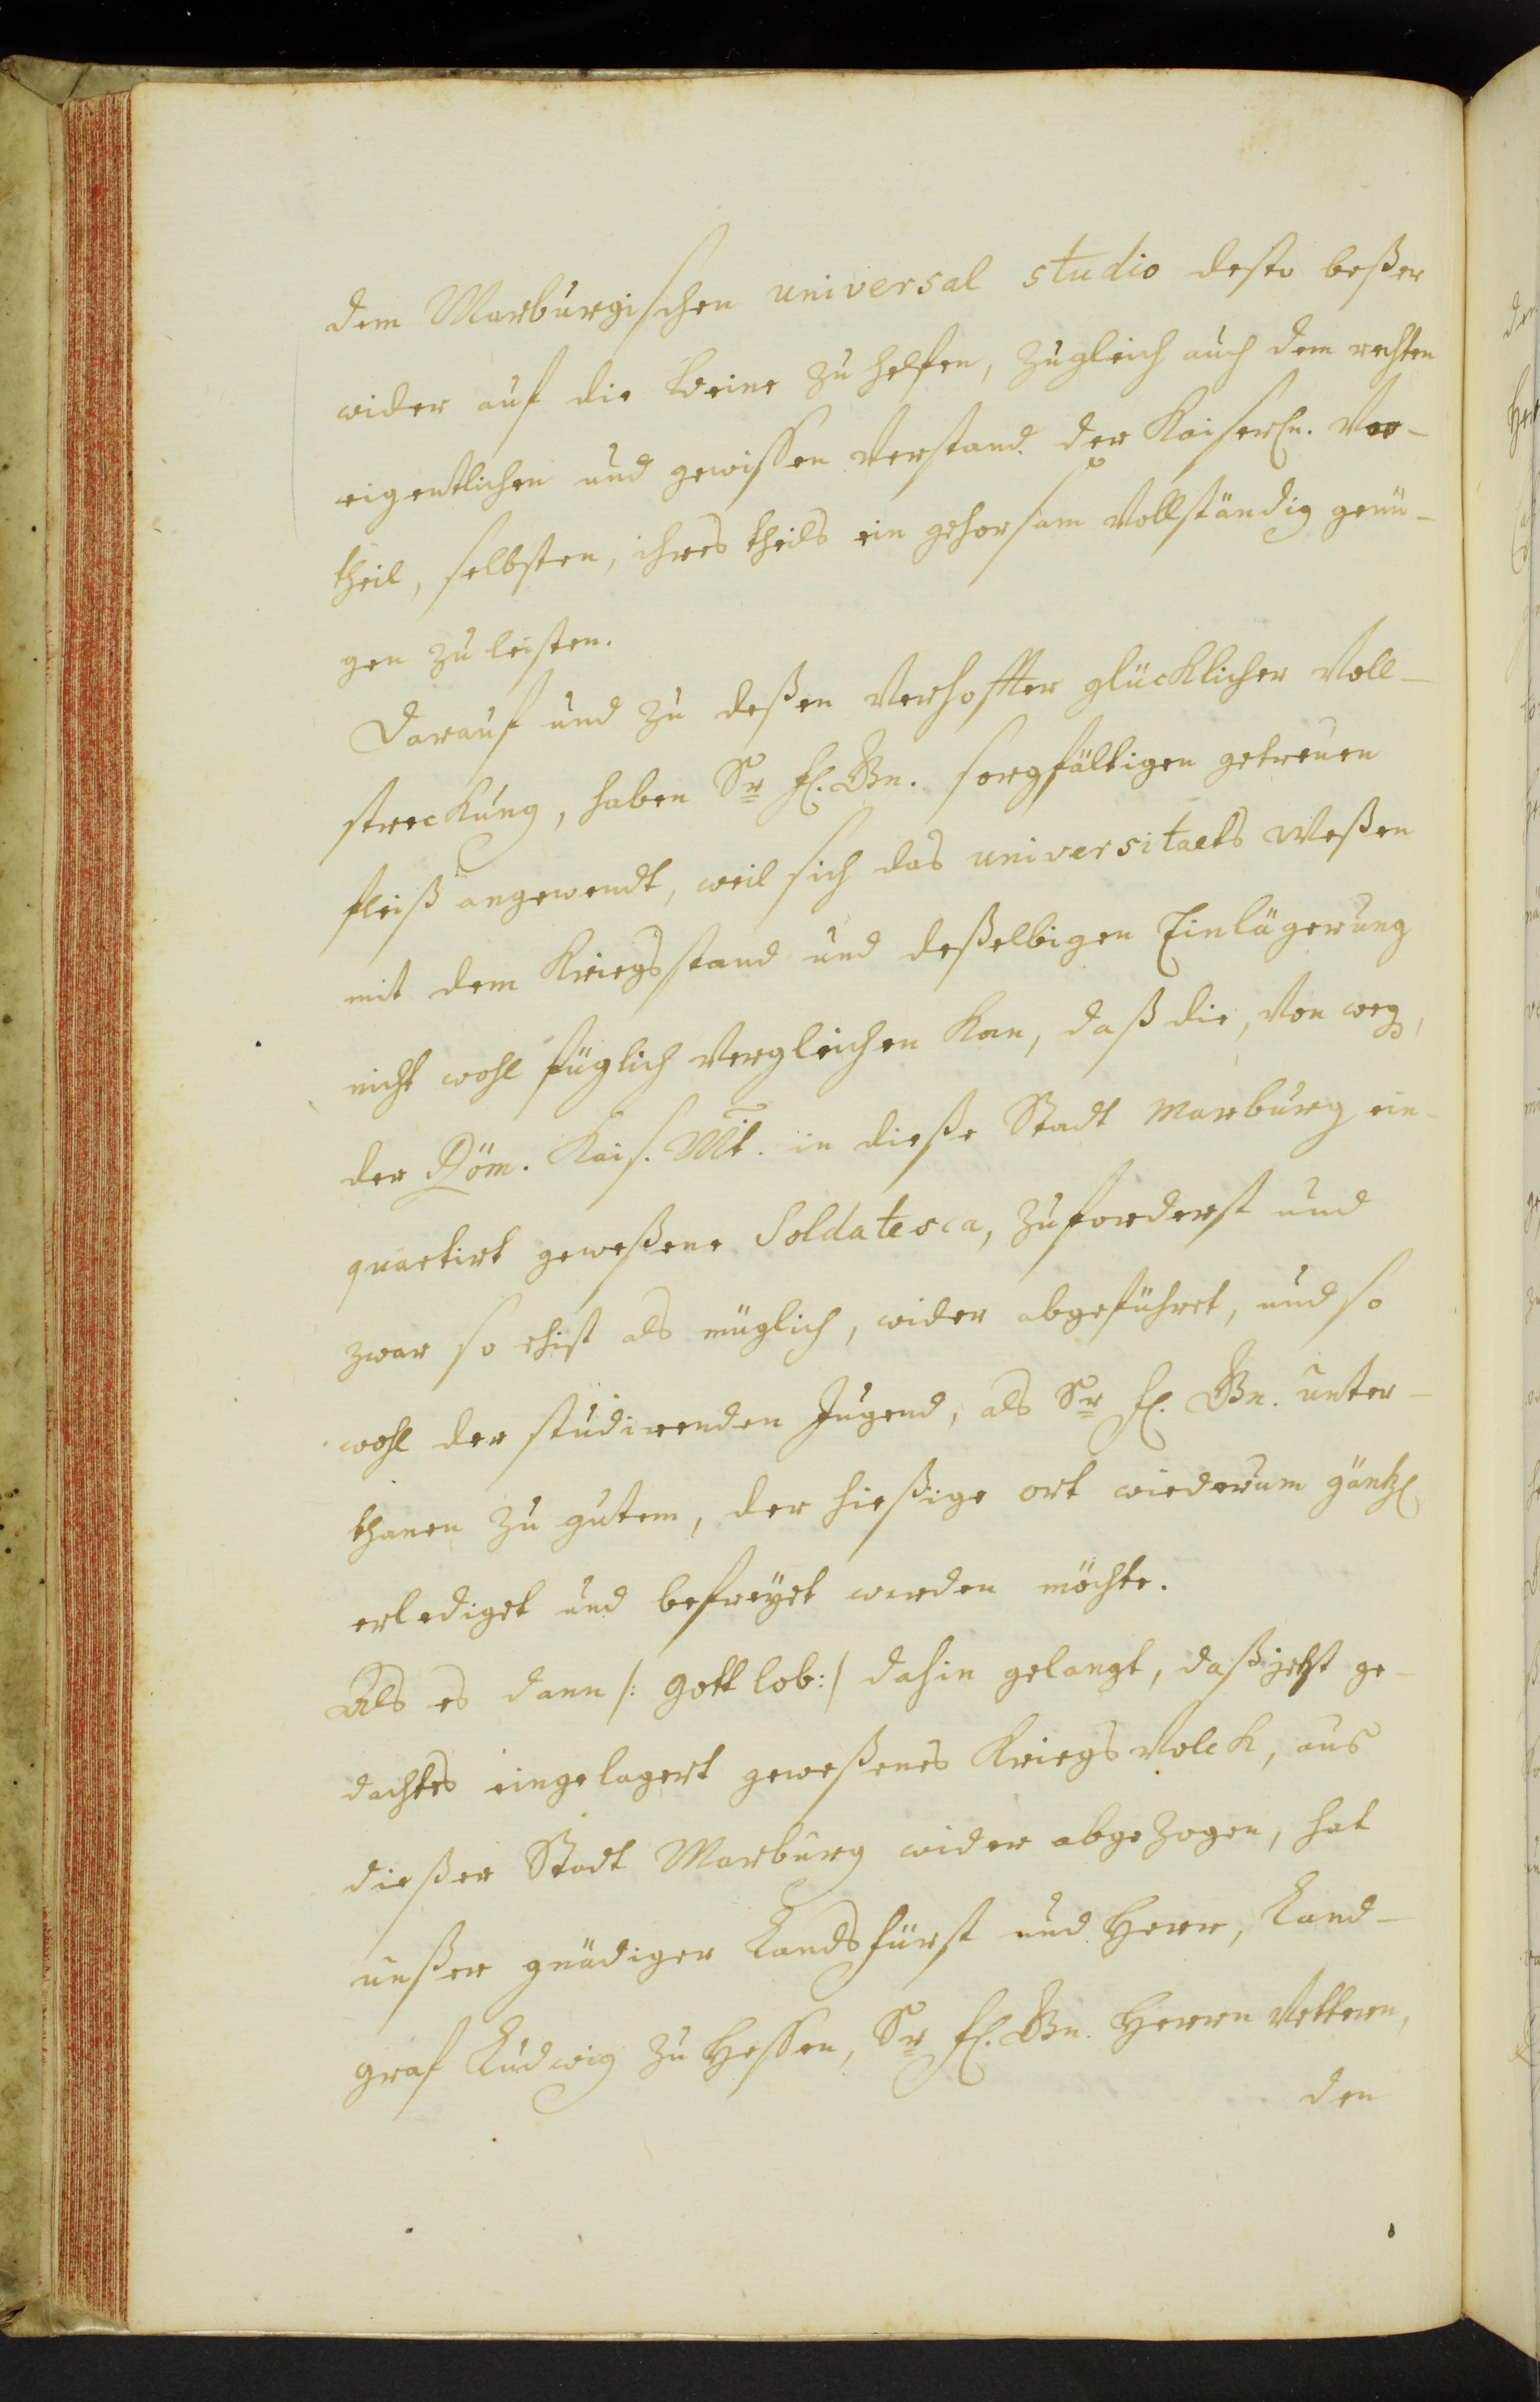 dem Marburgischen universal studio desto beßer
wider auf die beine zu helfen, zugleich auch dem rechten
eigentlichen und gewissen Verstand der Kaiserln. Vor-
theil, selbsten, ihres theils ein gehorsam Vollständig genü-
gen zu leisten.
Darauf und zu deßen Verhoffter glücklicher Voll-
streckung, haben Sr fl. Gn. sorgfältigen getreuen
fleiß angewendt, weil sich das universitaets Weßen
mit dem Kriegsstand und deßelbigen Einlägerung
nicht wohl füglich Vergleichen kan, daß die, Von weg,
der Röm. Kais. Mt. in dieße Stadt Marburg ein-
quartirt geweßene Soldatesca, zuforderst und
zwar so ehist als müglich, wider abgeführet, und so
wohl der studirenden Jugend, als Sr fl. Gn. unter-
thanen zu gutem, der hießige ort wiederum gäntzl
erlediget und befreyet werden möchte.
Als es dann /: Gott lob:/ dahin gelangt, daß jetzt ge-
dachtes eingelagert geweßenes Kriegs Volck, aus
dießer Stadt Marburg wider abgezogen, hat
unßer gnädiger Landsfürst und Herr, Land-
graf Ludwig zu Hessen, Sr fl. Gn. Herrn Vettern,
den